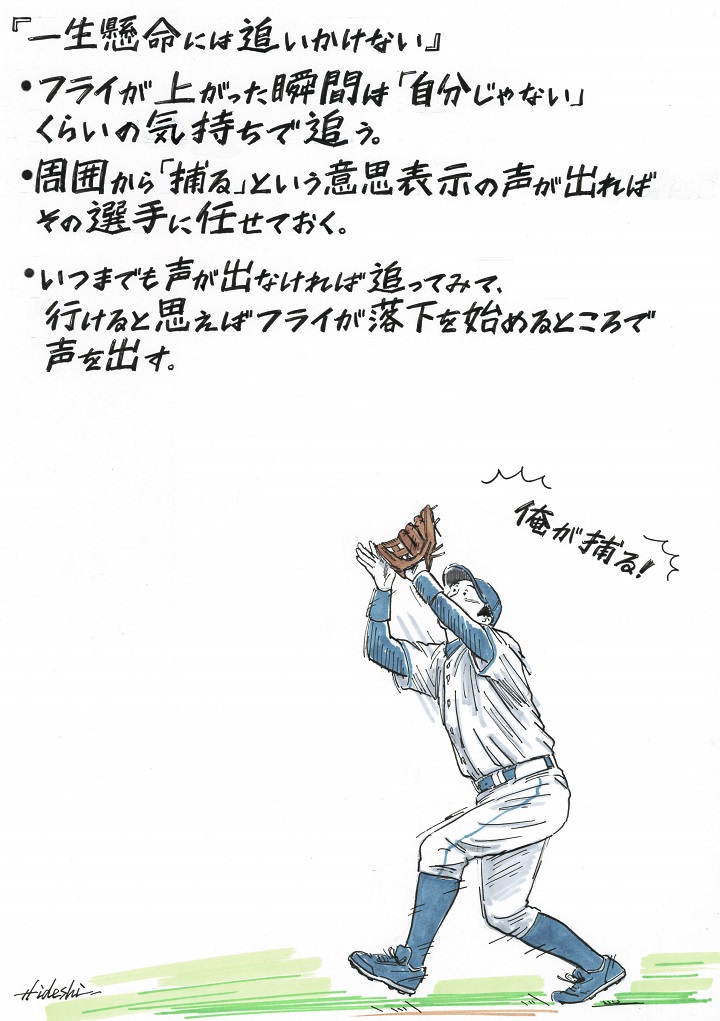 『一生懸命には追いかけない』
•フライが上がった瞬間は「自分じゃない」
くらいの気持ちで追う。
•周囲から「捕る」という意思表示の声が出れば
その選手に任せておく。
•いつまでも声が出なければ追ってみて、
行けると思えばフライが落下を始めるところで
声を出す。
俺が捕る!
Hideshi